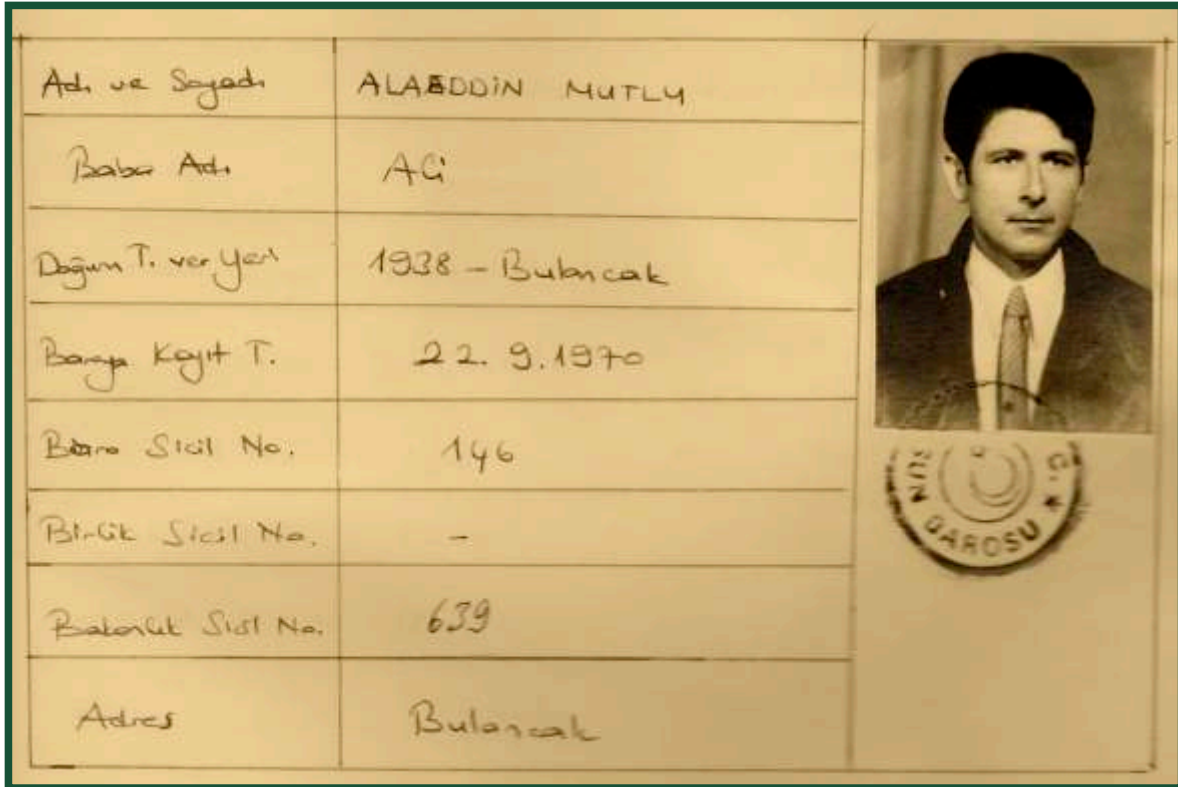 Adı ve Soyadı ALAEDDİN MUTLU
Baba Adı Ali
Doğum T. ver Yeri 1938 - Bulancak
Baroya Kayıt T. 22. 9. 1970
Baro Sicil No. 146
Birlik Sicil No. -
Bakanlık Sicil No. 639
Adres Bulancak
SUN BAROSU